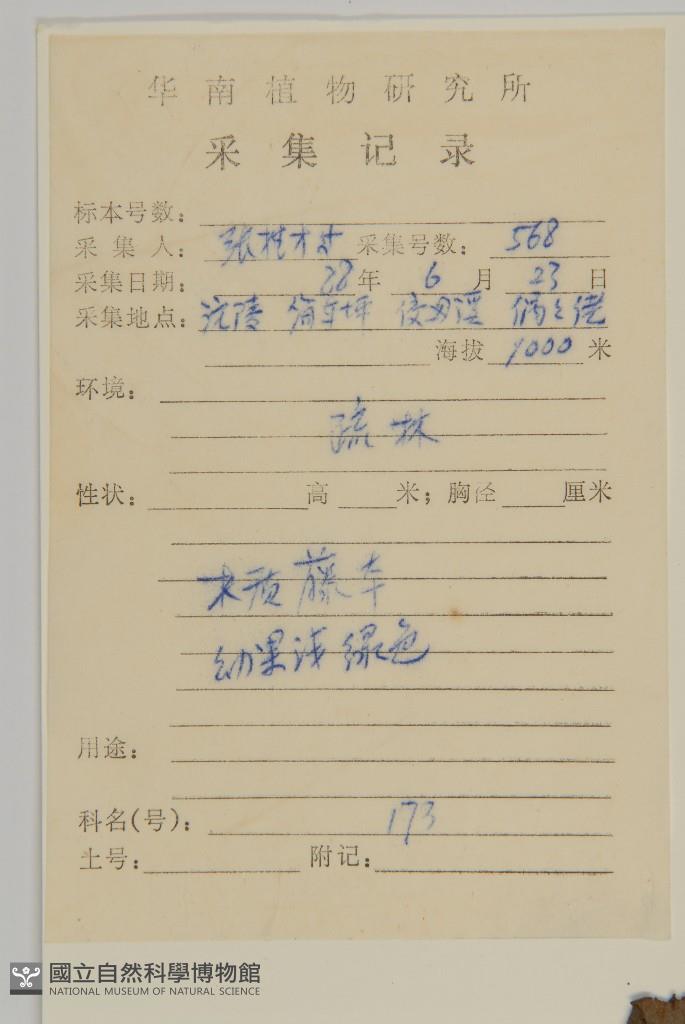 华南植物研究所
采集记录
标本号数：
采集人：张桂才 采集号数：568
采集日期：88年6月23日
采集地点：沅陵
海拔 1000 米
环境：
疏林
性状： 高 米；胸径 厘米
木质藤本
幼果浅绿色
用途：
科名(号)：173
土号： 附记：
國立自然科學博物館
NATIONAL MUSEUM OF NATURAL SCIENCE